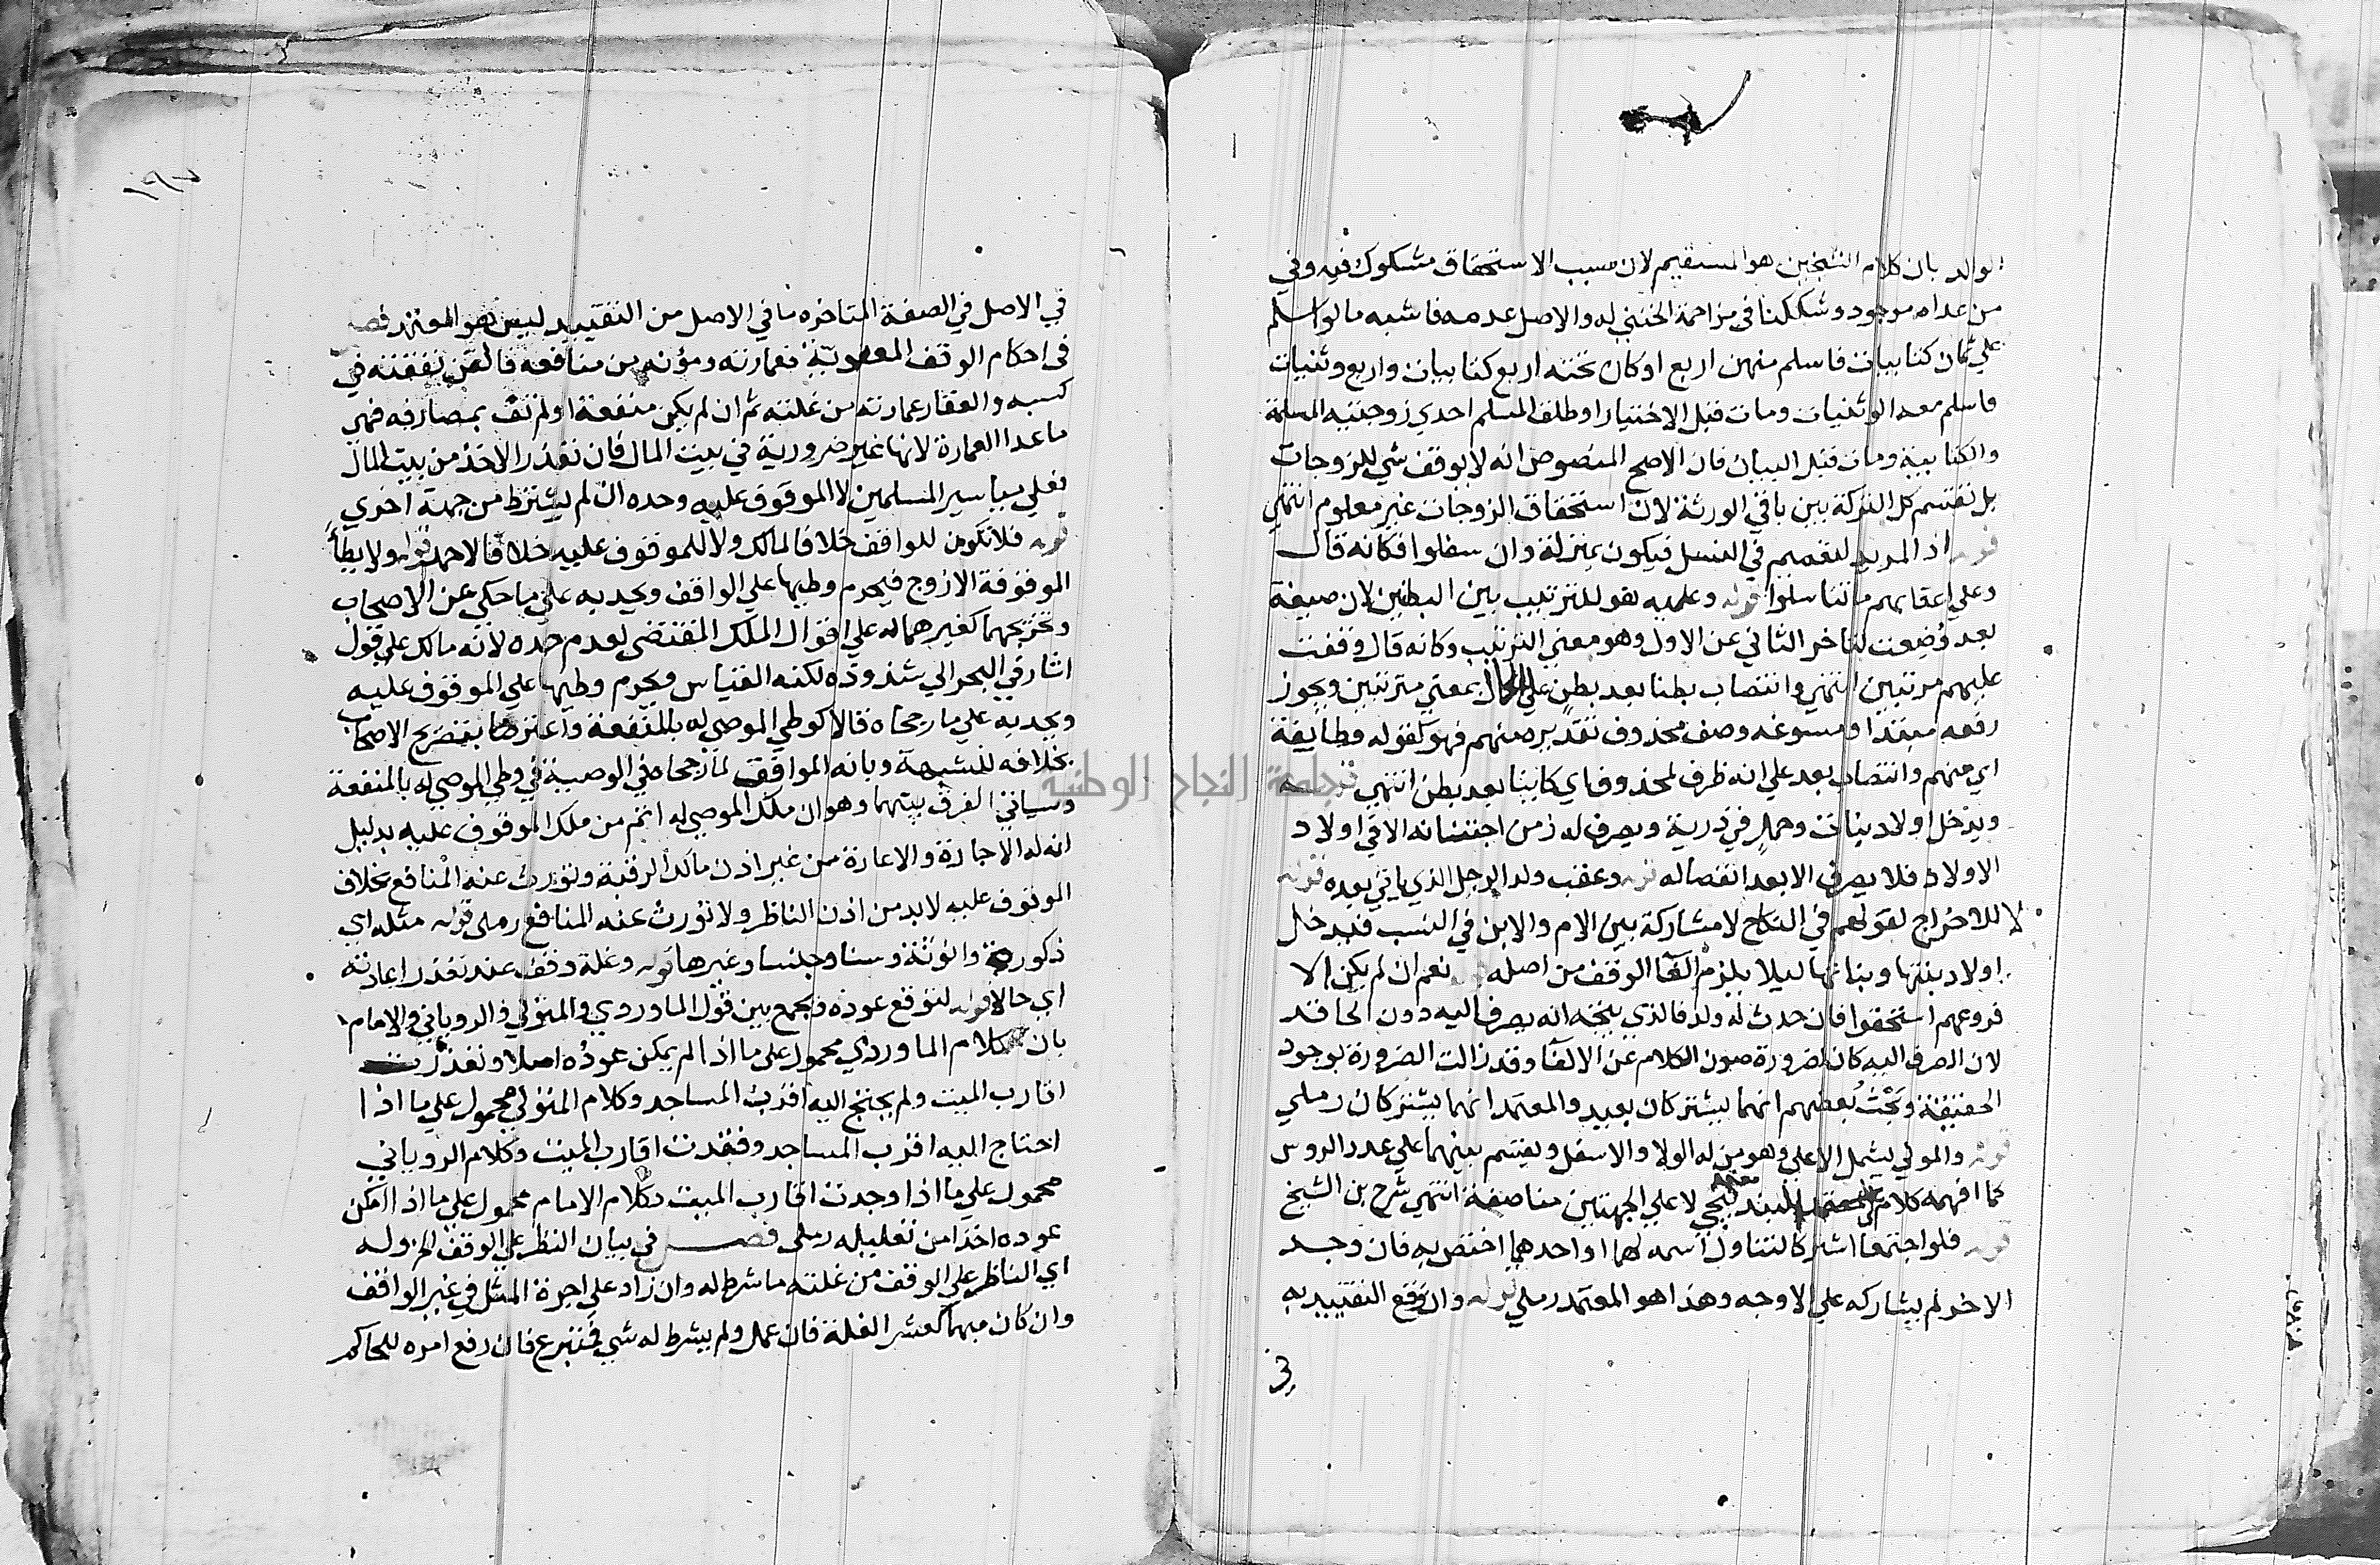 الوالد بان كلام الشيخين هو المستقيم لان سبب الاستحقاق مشكوك فيه وفي
من عداه موجود وشككنا في مزاحمة الخنثي له والاصل عدمه فاشبه ما لو اسلم
علي ثمان كتابيات فاسلم منهن اربع او كان تحته اربع كتابيات واربع وثنيات
فاسلم معه الوثنيات ومات قبل الاختيار او طلق المسلم احدي زوجتيه المسلمة
والكتابية ومات قبل البيان فان الاصح المنصوص انه لا يوقف شي للزوجات
بل تقسم كل التركة بين باقي الورثة لان استحقاق الزوجات غير معلوم انتهي
قوله اذ المريد للتعميم في النسل فيكون بمنزلة وان سفلوا فكانه قال
وعلي اعقابهم ما تناسلوا قوله وعليه هو للترتيب بين البطنين لان صيغة
بعد وُضِعت لتاخر الثاني عن الاول وهو معني الترتيب وكانه قال وقفت
عليهم مرتبين انتهي وانتصاب بطنا بعد بطن علي الحال بمعني مترتبين ويجوز
رفعه مبتدا ومسوغه وصف محذوف تقديره منهم فهو كقوله وطايفة
اي منهم وانتصاب بعد علي انه ظرف لمحذوف اي كاينا بعد بطن انتهي
ويدخل اولاد بنات وحمل في ذرية ويصرف له زمن اجتنانه الا في اولاد
الاولاد فلا يصرف الا بعد انفصاله قوله وعقب ولد الرجل الذي ياتي بعده قوله
لا للاخراج لقولهم في النكاح لا مشاركة بين الام والابن في النسب فيدخل
اولاد بنتها وبناتها ليلا يلزم الغا الوقف من اصله نعم ان لم يكن الا
فروعهم استحقوا فان حدث له ولد فالذي يتجه انه يصرف اليه دون الحافد
لان الصرف اليه كان لضرورة صون الكلام عن الالغا وقد زالت الضرورة بوجود
الحقيقة وبَحْثُ بعضهم انهما يشتركان بعيد والمعتمد انهما يشتركان رملي
قوله والمولي يشمل الاعلي وهو من له الولا والاسفل ويقسم بينهما علي عدد الروس
كما افهمه كلام البندنيجي لا علي الجهتين مناصفة انتهي شرح بن الشيخ
قوله فلو اجتمعا اشتركا لتناول اسمه لهما او احدهما اختص به فان وجد
الاخر لم يشاركه علي الاوجه وهذا هو المعتمد رملي قوله وان وقع التقييد به
في
١٩٧
في الاصل في الصفة المتاخره ما في الاصل من التقييد ليس هو المعتمد فصل
في احكام الوقف المعنوية فعمارته ومؤنه من منافعه فالقن نفقته في
كسبه والعقار عمارته من غلته ثم ان لم يكن منفعة او لم تف بمصارفه فهي
ما عدا العمارة لانها غير ضرورية في بيت المال فان تعذر الاخذ من بيت المال
فعلي مياسير المسلمين لا الموقوف عليه وحده ان لم يشترط من جهة اخري
قوله فلا تكون للواقف خلافا لمالك ولا للموقوف عليه خلافا لاحمد قوله ولا يطأ
الموقوفة الا زوج فيحرم وطيها علي الواقف ويحد به علي ما حكي عن الاصحاب
وتخريجهما كغيرهما له علي اقوال الملك المقتضي لعدم حده لانه مالك علي قول
اشار في البحر الي شذوذه لكنه القياس ويحرم وطيها علي الموقوف عليه
ويحد به علي ما رجحاه قالا كوطي الموصي له بالمنفعة واعترضا بتصريح الاصحاب
بخلافه للشبهة وبانه الموافق لما رجحاه في الوصية في وطي الموصي له بالمنفعة
وسياتي الفرق بينهما وهو ان ملك الموصي له اتم من ملك الموقوف عليه بدليل
انه له الاجارة والاعارة من غير اذن مالك الرقبة وتورث عنه المنافع بخلاف
الموقوف عليه لا بد من اذن الناظر ولا تورث عنه المنافع رملي قوله مثله اي
ذكورة وانوثة وسنا وجنسا وغيرها قوله وغلة وقف عند تعذر اعادته
اي حالا قوله لتوقع عوده ويجمع بين قول الماوردي والمتولي والروياني والامام
بان كلام الماوردي محمول علي ما اذا لم يمكن عوده اصلا وتعذرت
اقارب الميت ولم يحتج اليه اقرب المساجد وكلام المتولي محمول علي ما اذا
احتاج اليه اقرب المساجد وفقدت اقارب الميت وكلام الروياني
محمول علي ما اذا وجدت اقارب الميت وكلام الامام محمول علي ما اذا امكن
عوده اخذا من تعليله رملي فصل في بيان النظر علي الوقف الخ وله
اي الناظر علي الوقف من غلته ما شرط له وان زاد علي اجرة المثل في غير الواقف
وان كان مبهما كعشر الغلة فان عمل ولم يشرط له شي فمتبرع فان رفع امره للحاكم
جامعة النجاح الوطنية